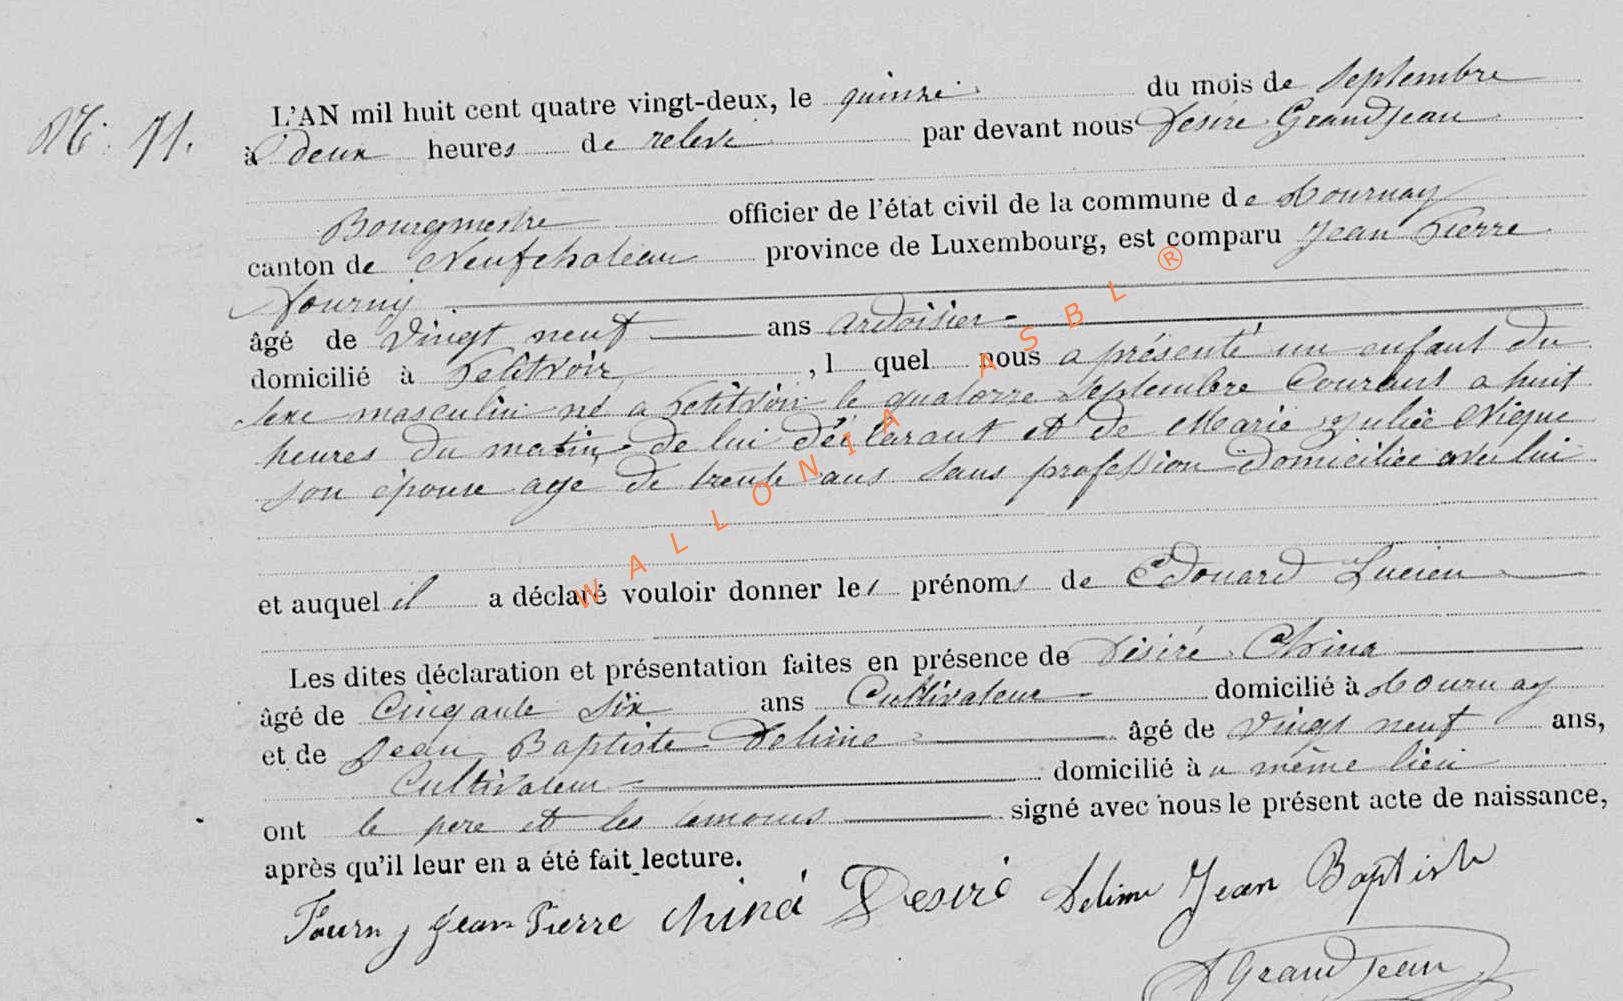 N° 71.
L'AN mil huit cent quatre vingt-deux, le quinze du mois de Septembre
à deux heures de relevé par devant nous Désiré Grandjean
Bourgmestre officier de l'état civil de la commune de Tournay
canton de Neufchateau province de Luxembourg, est comparu Jean Pierre
Fourny
âgé de vingt neuf ans ardoisier
domicilié à Petitvoir, l quel nous a présenté un enfant du
sexe masculin né a Petitvoir le quatorze Septembre Courant a huit
heures du matin de lui déclarant et de Marie Julie Nique
son épouse age de trente ans sans profession domiciliée avec lui
et auquel il a déclaré vouloir donner les prénoms de Edouard Lucien
Les dites déclaration et présentation faites en présence de Désiré China
âgé de Cinquante Six ans Cultivateur domicilié à Tournay
et de Jean Baptiste Delime âgé de vingt neuf ans,
Cultivateur domicilié à u même lieu
ont le pere et les temoins signé avec nous le présent acte de naissance,
après qu'il leur en a été fait lecture.
Fourny Jean Pierre China Desiré Delime Jean Baptiste
D Grandjean
WALLONIA ASBL ®